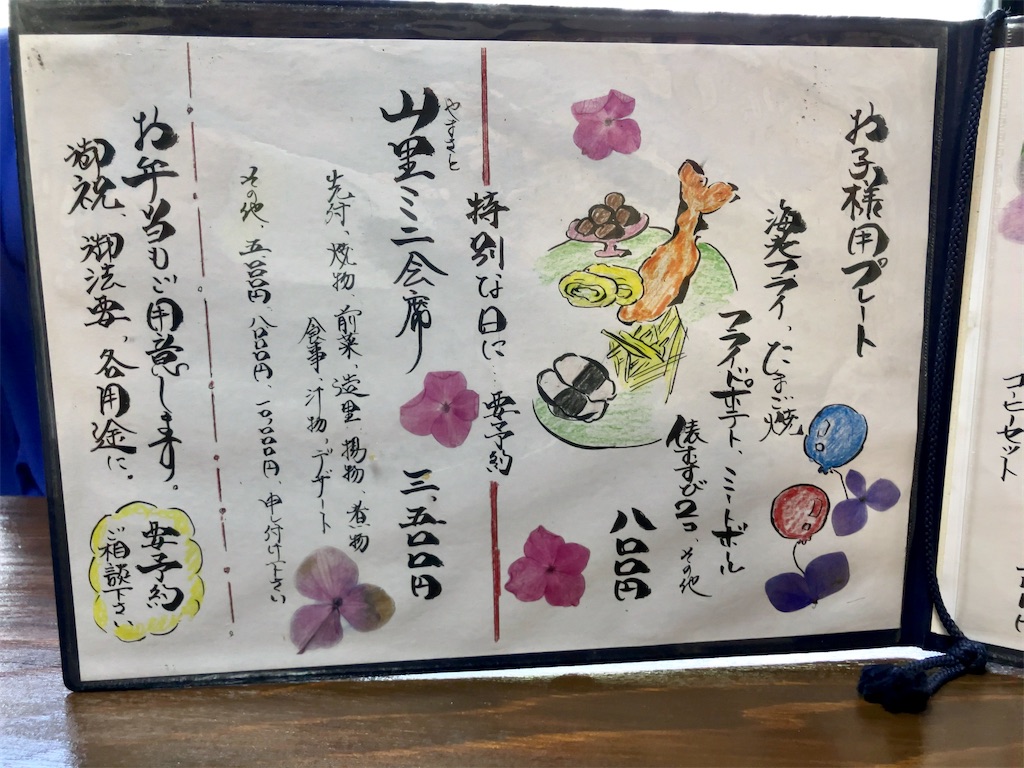 お子様用プレート
海老フライ、たまご焼
フライドポテト、ミートボール
俵むすび2コ、その他
八〇〇円
特別な日に…要予約
やまさと
山里ミニ会席
三、五〇〇円
先付、焼物、前菜、造里、揚物、煮物
食事、汁物、デザート
その他、五〇〇〇円、八〇〇〇円、一〇、〇〇〇円、申し付け下さい
お弁当もご用意します。
御祝、御法要、各用途に。
要予約
ご相談下さい
コーヒーセット